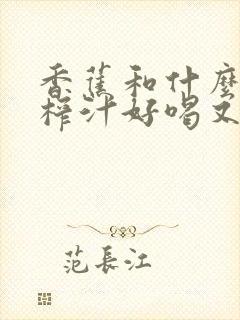 香蕉和什麼
榨汁好喝又
范長江